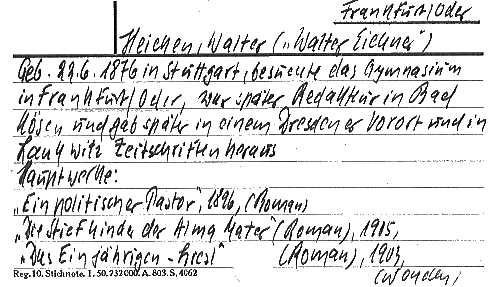 Frankfurt/Oder
Heichen, Walter („Walter Eichner")
Geb. 22.6.1876 in Stuttgart, besuchte das Gymnasium
in Frankfurt/Oder, war später Redakteur in Bad
Kösen und gab später in einem Dresdener Vorort und in
Lankwitz Zeitschriften heraus
Hauptwerke:
„Ein politischer Pastor", 1896, (Roman)
„Die Stiefkinder der Alma Mater" (Roman), 1905,
„Des Einjährigen-Liesl" (Roman), 1903,
Reg. 10. Stichnote. 1. 50. 232000. A. 803. S. 4062